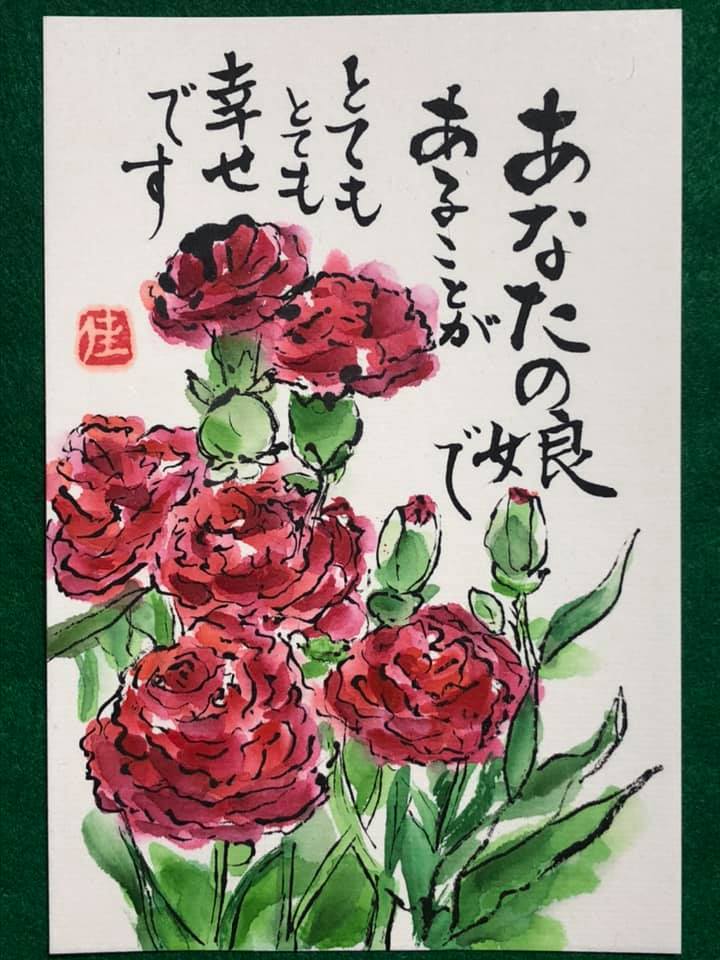 あなたの娘
で
あることが
とても
とても
幸せ
です
佳